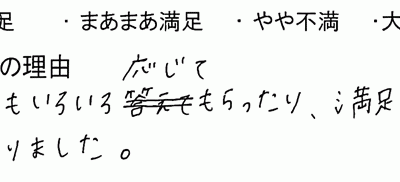 足 ・まあまあ満足 ・やや不満 ・大
の理由 応じて
もいろいろ答えてもらったり、満足
りました。